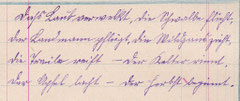 Das Laub verwelkt, die Schwalbe flieht,
der Landmann pflügt, die Wildgans zieht,
die Traube reift – der Kelter rinnt,
der Apfel lacht – der Herbst beginnt.